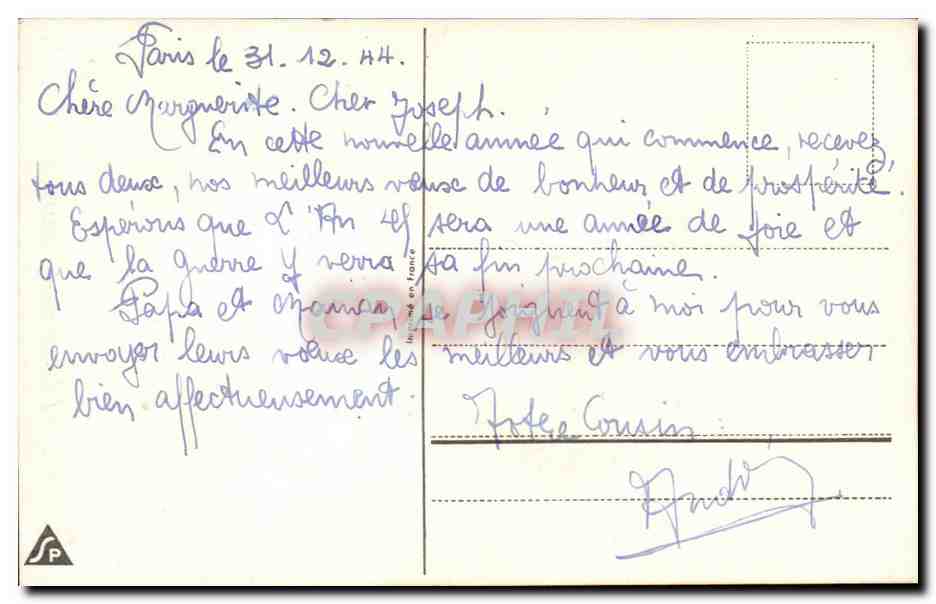 Paris le 31.12.44.
Chère Marguerite. Cher Joseph.
En cette nouvelle année qui commence, recevez,
tous deux, nos meilleurs vœux de bonheur et de prospérité.
Espérons que L'An 45 sera une année de joie et
que la guerre y verra sa fin prochaine.
Papa et Maman se joignent à moi pour vous
envoyer leurs vœux les meilleurs et vous embrasser
bien affectueusement.
Votre Cousin
André
Imprimé en France
CPAPHIL
SP